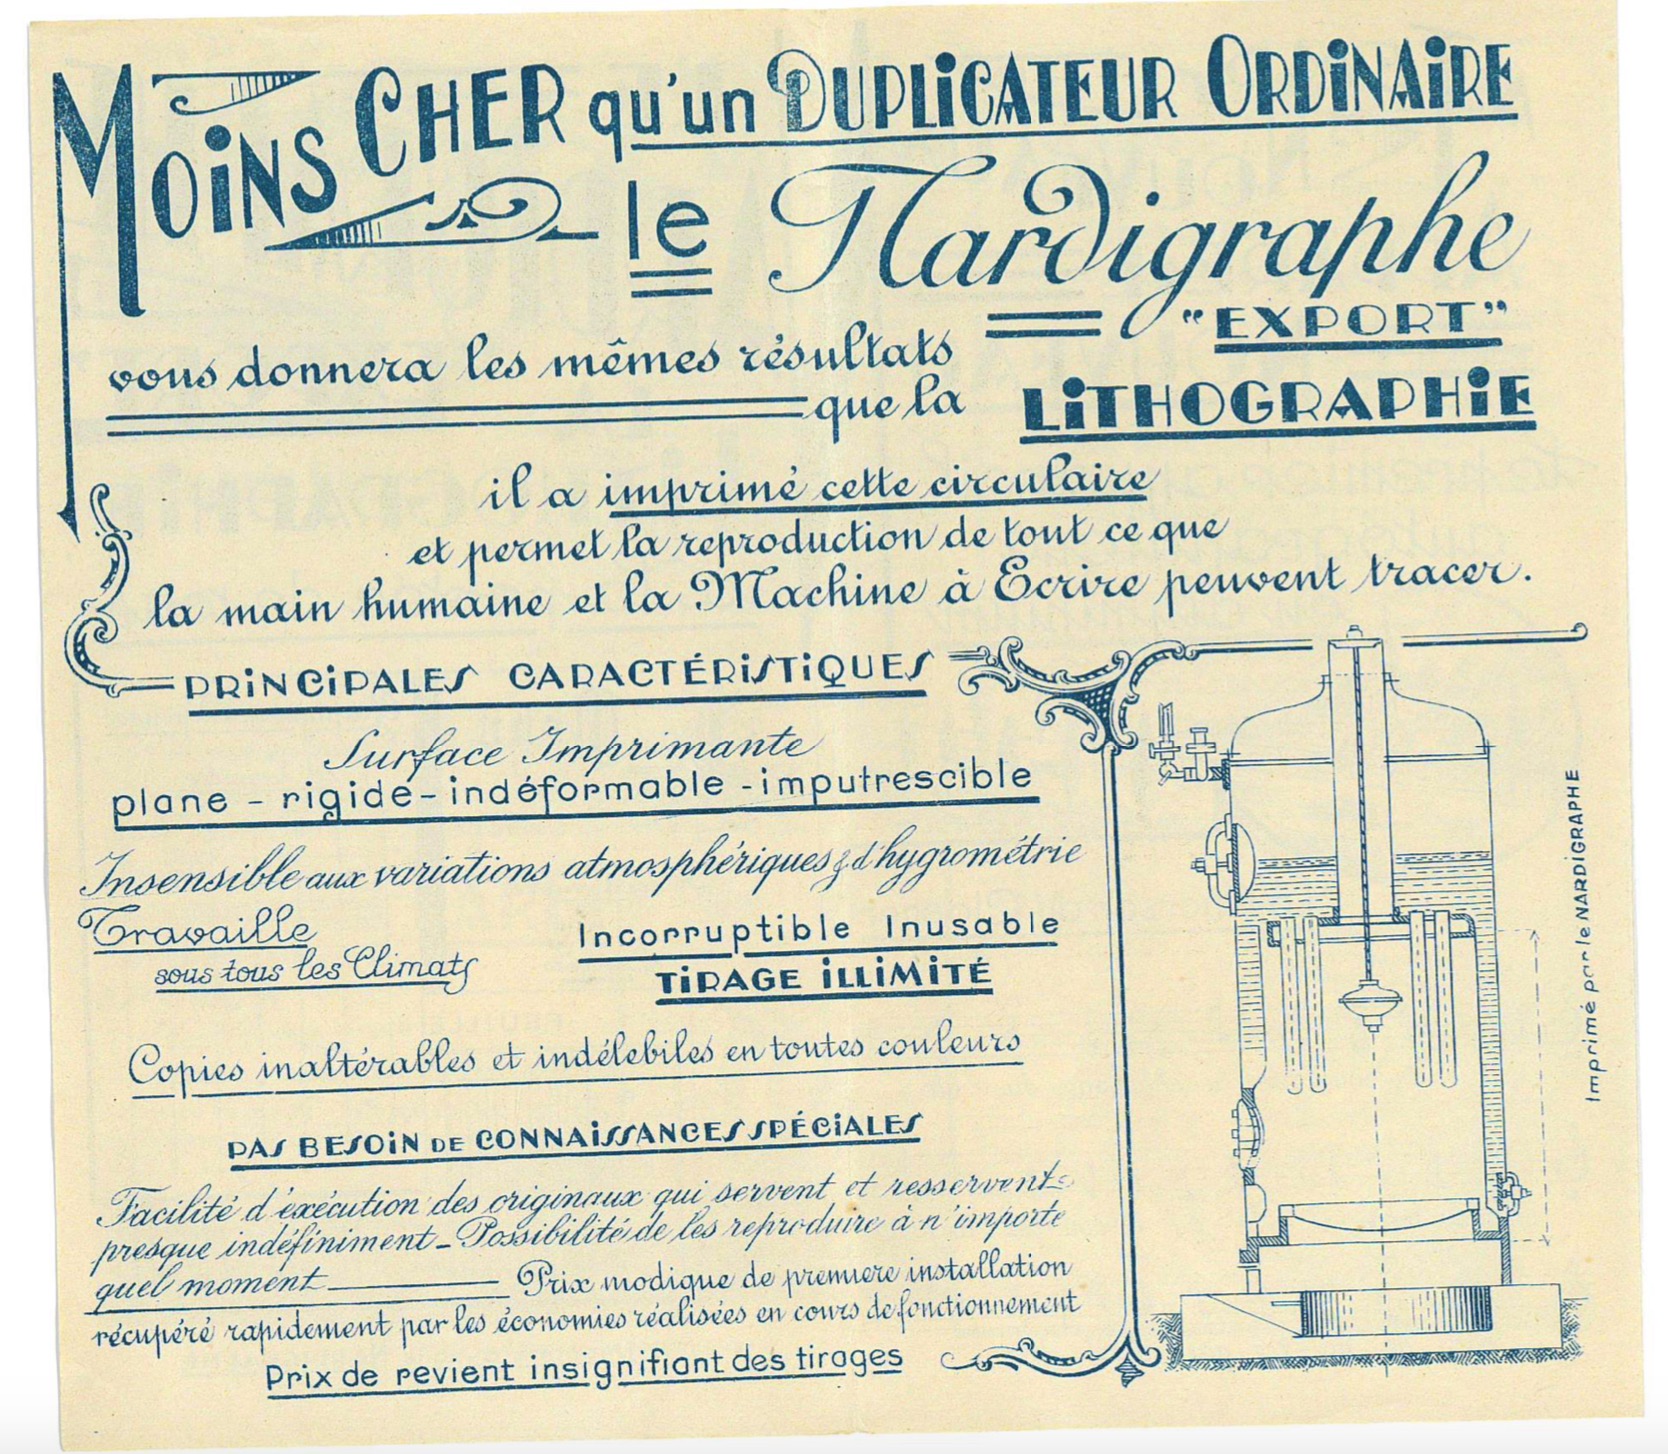 MOiNS CHER qu'un DUPLiCATEUR ORDiNAiRE
le Nardigraphe
"EXPORT"
vous donnera les mêmes résultats
que la LiTHOGRAPHiE
il a imprimé cette circulaire
et permet la reproduction de tout ce que
la main humaine et la Machine à Ecrire peuvent tracer.
PRiNCiPALES CARACTÉRiSTiQUES
Surface Imprimante
plane - rigide - indéformable - imputrescible
Insensible aux variations atmosphériques & d'hygrométrie
Travaille
sous tous les Climats
Incorruptible Inusable
TiRAGE iLLiMiTÉ
Copies inaltérables et indélébiles en toutes couleurs
PAS BESOiN DE CONNAiSSANCES SPÉCiALES
Facilité d'éxécution des originaux qui servent et resservent
presque indéfiniment - Possibilité de les reproduire à n'importe
quel moment
Prix modique de premiere installation
récupéré rapidement par les économies réalisées en cours de fonctionnement
Prix de revient insignifiant des tirages
Imprimé par le NARDiGRAPHE